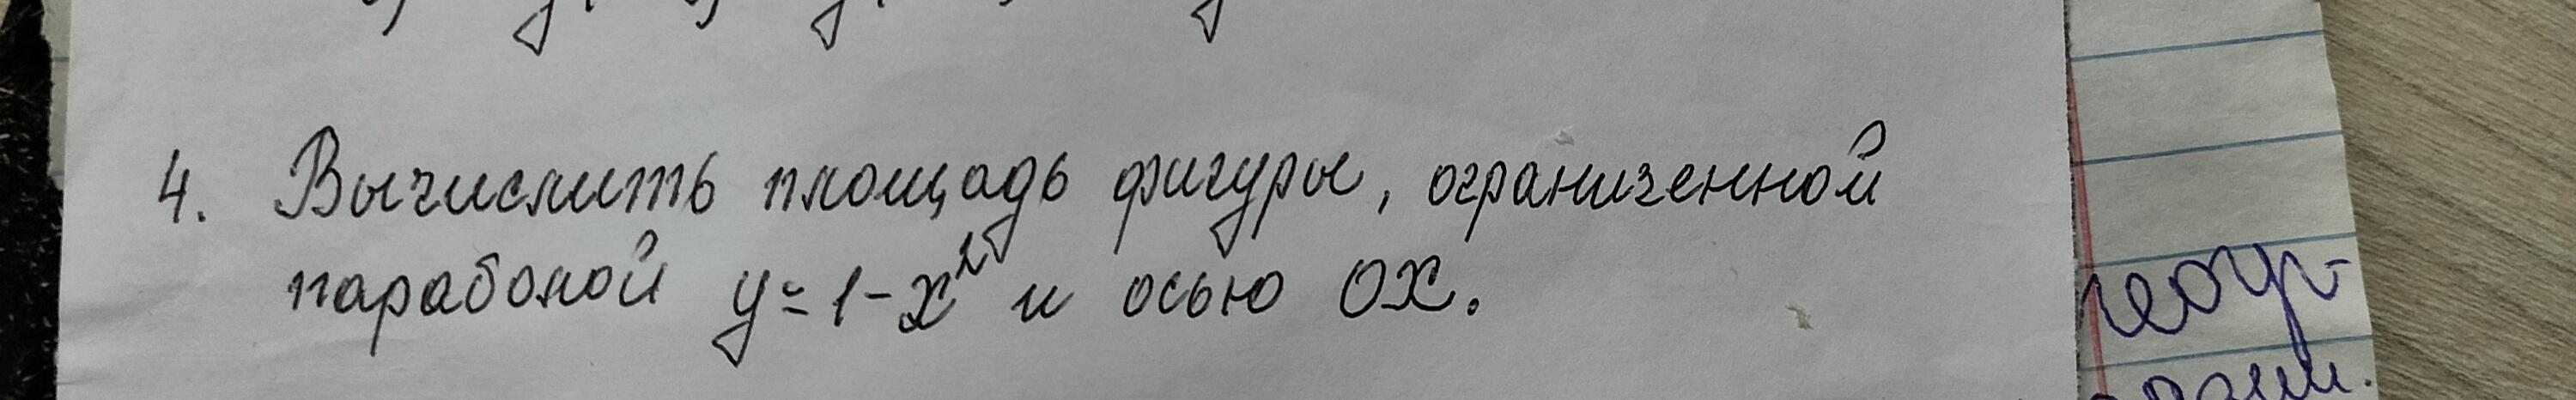 4. Вычислить площадь фигуры, ограниченной
параболой y = 1 - x² и осью OX.